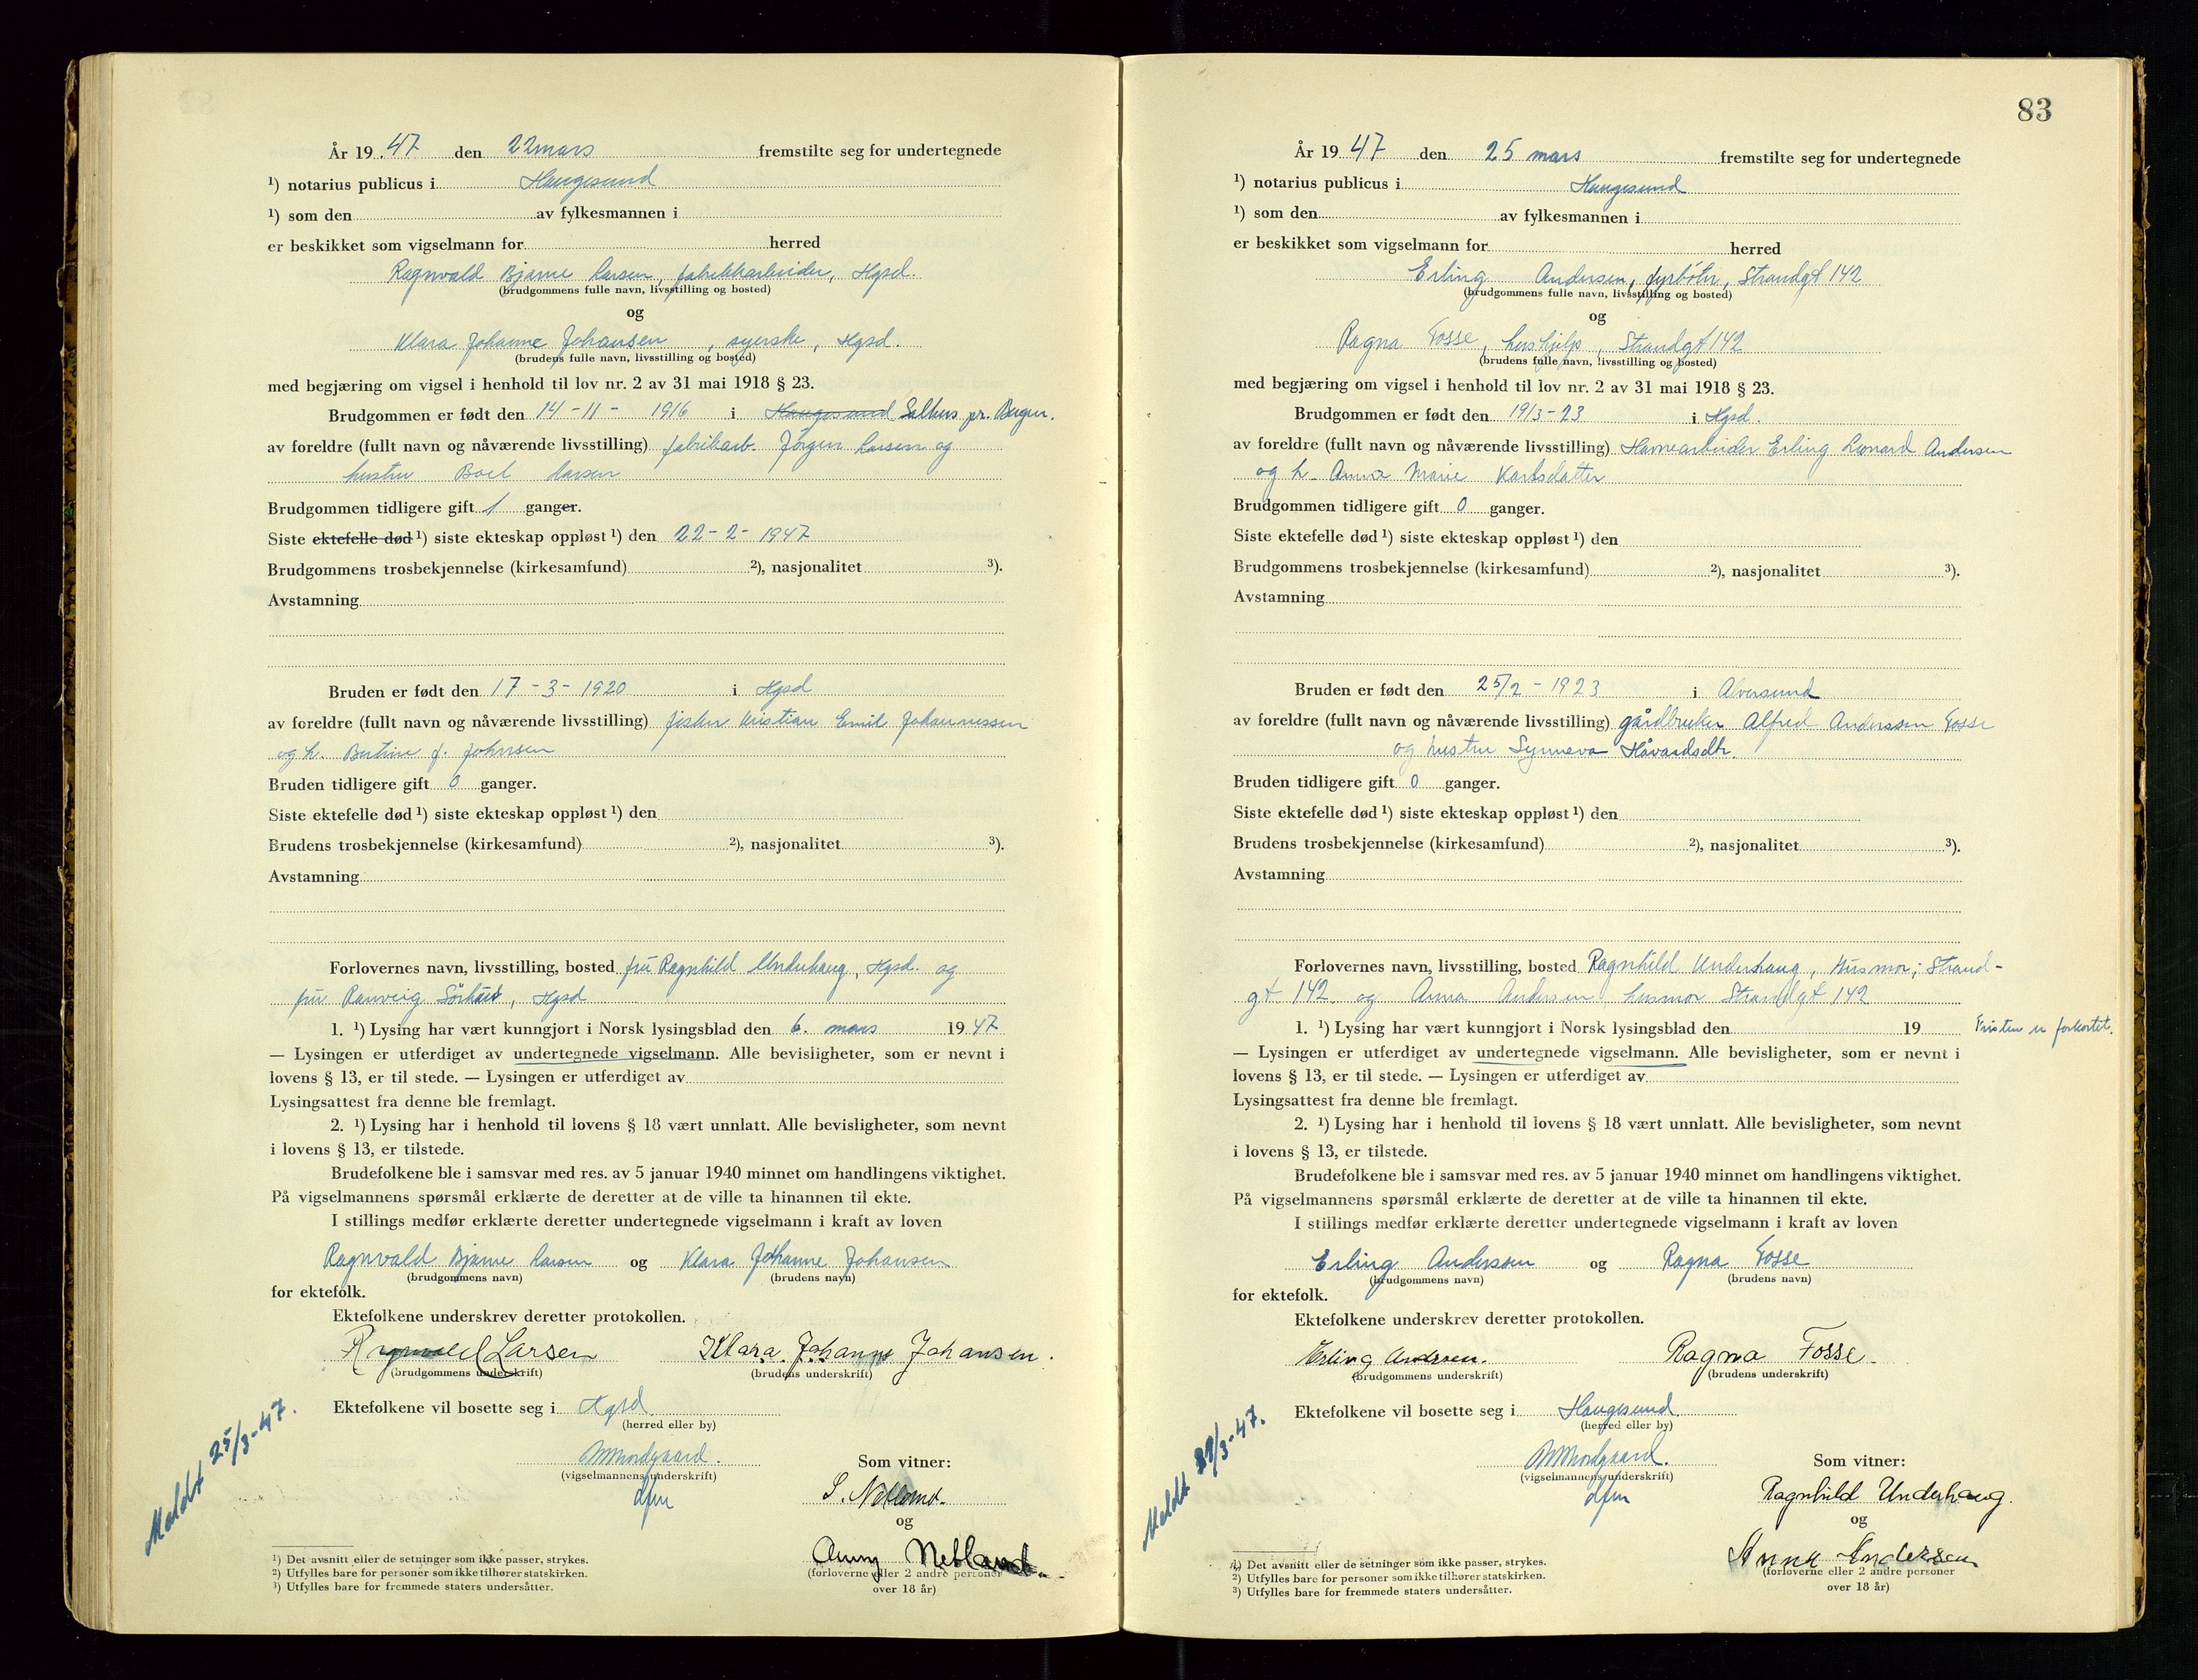 År 19 47 den 22 mars fremstilte seg for undertegnede
¹) notarius publicus i Haugesund
¹) som den av fylkesmannen i
er beskikket som vigselmann for herred
Ragnvald Bjarne Larsen, fabrikkarbeider, Hgsd.
(brudgommens fulle navn, livsstilling og bosted)
og
Klara Johanne Johansen, syerske, Hgsd.
(brudens fulle navn, livsstilling og bosted)
med begjæring om vigsel i henhold til lov nr. 2 av 31 mai 1918 § 23.
Brudgommen er født den 14-11-1916 i Haugesund Salhus pr. Bergen.
av foreldre (fullt navn og nåværende livsstilling) fabrikarb. Jørgen Larsen og
hustru Boel Larsen
Brudgommen tidligere gift 1 ganger.
Siste ektefelle død ¹) siste ekteskap oppløst ¹) den 22-2-1947
Brudgommens trosbekjennelse (kirkesamfund) ²), nasjonalitet ³).
Avstamning
Bruden er født den 17-3-1920 i Hgsd
av foreldre (fullt navn og nåværende livsstilling) fisker Kristian Emil Johannessen
og h. Bertine f. Johnsen
Bruden tidligere gift 0 ganger.
Siste ektefelle død ¹) siste ekteskap oppløst ¹) den
Brudens trosbekjennelse (kirkesamfund) ²), nasjonalitet ³).
Avstamning
Forlovernes navn, livsstilling, bosted fru Ragnhild Underhaug, Hgsd. og
fru Ranveig Hgsd
1. ¹) Lysing har vært kunngjort i Norsk lysingsblad den 6. mars 19 47
— Lysingen er utferdiget av undertegnede vigselmann. Alle bevisligheter, som er nevnt i
lovens § 13, er til stede. — Lysingen er utferdiget av
Lysingsattest fra denne ble fremlagt.
2. ¹) Lysing har i henhold til lovens § 18 vært unnlatt. Alle bevisligheter, som nevnt
i lovens § 13, er tilstede.
Brudefolkene ble i samsvar med res. av 5 januar 1940 minnet om handlingens viktighet.
På vigselmannens spørsmål erklærte de deretter at de ville ta hinannen til ekte.
I stillings medfør erklærte deretter undertegnede vigselmann i kraft av loven
Ragnvald Bjarne Larsen og Klara Johanne Johansen
(brudgommens navn) (brudens navn)
for ektefolk.
Ektefolkene underskrev deretter protokollen.
Ragnvald Larsen Klara Johanne Johansen.
(brudgommens underskrift) (brudens underskrift)
Ektefolkene vil bosette seg i Hgsd.
(herred eller by)
Meldt 25/3-47.
(vigselmannens underskrift)
dfm
Som vitner:
S. Netland.
og
Anny Netland.
(forloverne eller 2 andre personer
over 18 år)
¹) Det avsnitt eller de setninger som ikke passer, strykes.
²) Utfylles bare for personer som ikke tilhører statskirken.
³) Utfylles bare for fremmede staters undersåtter.
83
År 19 47 den 25 mars fremstilte seg for undertegnede
¹) notarius publicus i Haugesund
¹) som den av fylkesmannen i
er beskikket som vigselmann for herred
Erling Andersen, fyrbøter, Strandgt 142
(brudgommens fulle navn, livsstilling og bosted)
og
Ragna Fosse, hushjelp, Strandgt 142
(brudens fulle navn, livsstilling og bosted)
med begjæring om vigsel i henhold til lov nr. 2 av 31 mai 1918 § 23.
Brudgommen er født den 19/3-23 i Hgsd.
av foreldre (fullt navn og nåværende livsstilling) Havnearbeider Erling Leonard Andersen
og h. Anna Marie Karlsdatter
Brudgommen tidligere gift 0 ganger.
Siste ektefelle død ¹) siste ekteskap oppløst ¹) den
Brudgommens trosbekjennelse (kirkesamfund) ²), nasjonalitet ³).
Avstamning
Bruden er født den 25/2-1923 i Alversund
av foreldre (fullt navn og nåværende livsstilling) gårdbruker Alfred Anderssen Fosse
og hustru Synneva Håvardsdtr.
Bruden tidligere gift 0 ganger.
Siste ektefelle død ¹) siste ekteskap oppløst ¹) den
Brudens trosbekjennelse (kirkesamfund) ²), nasjonalitet ³).
Avstamning
Forlovernes navn, livsstilling, bosted Ragnhild Underhaug, Husmor, Strand-
gt 142 og Anna Andersen husmor Strandgt 142
1. ¹) Lysing har vært kunngjort i Norsk lysingsblad den 19 Fristen er forkortet.
— Lysingen er utferdiget av undertegnede vigselmann. Alle bevisligheter, som er nevnt i
lovens § 13, er til stede. — Lysingen er utferdiget av
Lysingsattest fra denne ble fremlagt.
2. ¹) Lysing har i henhold til lovens § 18 vært unnlatt. Alle bevisligheter, som nevnt
i lovens § 13, er tilstede.
Brudefolkene ble i samsvar med res. av 5 januar 1940 minnet om handlingens viktighet.
På vigselmannens spørsmål erklærte de deretter at de ville ta hinannen til ekte.
I stillings medfør erklærte deretter undertegnede vigselmann i kraft av loven
Erling Anderssen og Ragna Fosse
(brudgommens navn) (brudens navn)
for ektefolk.
Ektefolkene underskrev deretter protokollen.
Erling Andersen. Ragna Fosse.
(brudgommens underskrift) (brudens underskrift)
Ektefolkene vil bosette seg i Haugesund.
(herred eller by)
Meldt /3-47.
(vigselmannens underskrift)
dfm
Som vitner:
Ragnhild Underhaug.
og
Anna Andersen
(forloverne eller 2 andre personer
over 18 år)
¹) Det avsnitt eller de setninger som ikke passer, strykes.
²) Utfylles bare for personer som ikke tilhører statskirken.
³) Utfylles bare for fremmede staters undersåtter.